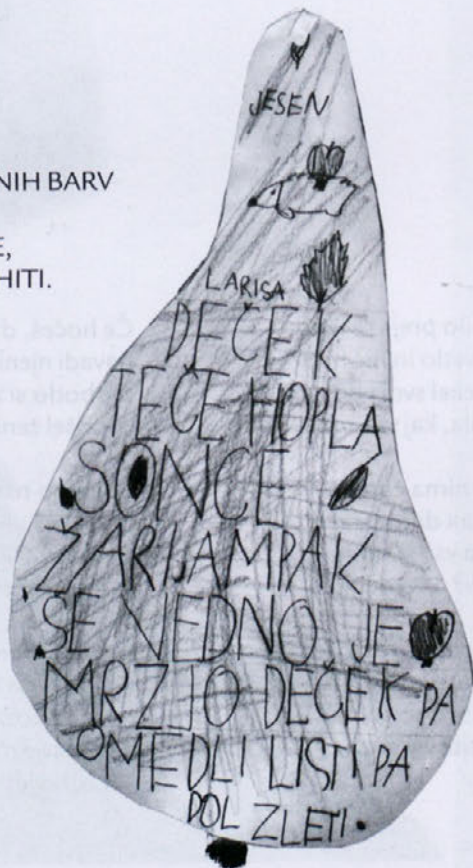 NIH BARV
E,
HITI.
JESEN
LARISA
DEČEK
TEČE HOPLA
SONCE
ŽARI AMPAK
ŠE VEDNO JE
MRZLO DEČEK PA
OMEDLI LIST PA
DOL ZLETI